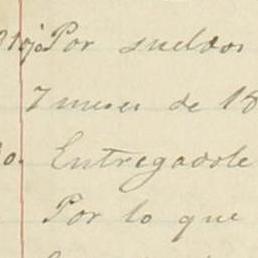 Por sueldos
7 meses de 18
Entregadole
Por lo que